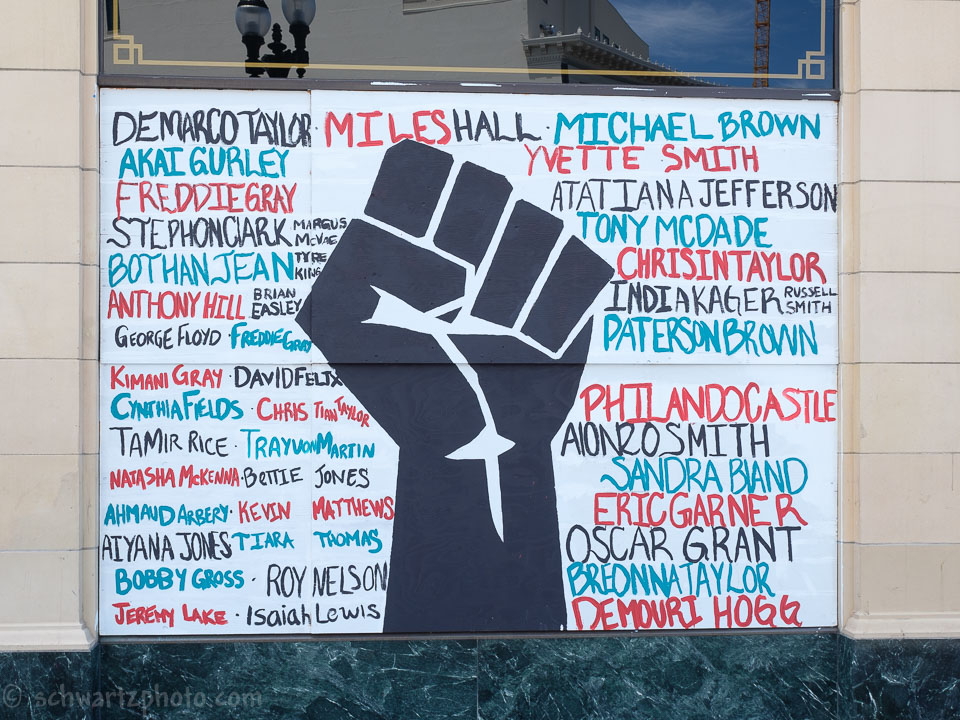 DEMARCO TAYLOR · MILES HALL · MICHAEL BROWN
AKAI GURLEY
YVETTE SMITH
FREDDIE GRAY
ATATIANA JEFFERSON
STEPHON CLARK
MARGUS
MCVAE
TONY MCDADE
BOTHAN JEAN
TYRE
KING
CHRISINTAYLOR
ANTHONY HILL
BRIAN
EASLEY
INDIA KAGER
RUSSELL
SMITH
GEORGE FLOYD · FREDDIE GRAY
PATERSON BROWN
KIMANI GRAY · DAVID FELIX
CYNTHIA FIELDS · CHRISTIAN TAYLOR
PHILANDO CASTLE
TAMIR RICE · TRAYVON MARTIN
ALONZO SMITH
NATASHA MCKENNA · BETTIE JONES
SANDRA BLAND
AHMAUD ARBERY · KEVIN MATTHEWS
ERIC GARNER
AIYANA JONES TIARA THOMAS
OSCAR GRANT
BOBBY GROSS · ROY NELSON
BREONNA TAYLOR
JEREMY LAKE · Isaiah Lewis
DEMOURI HOGG
© schwartzphoto.com